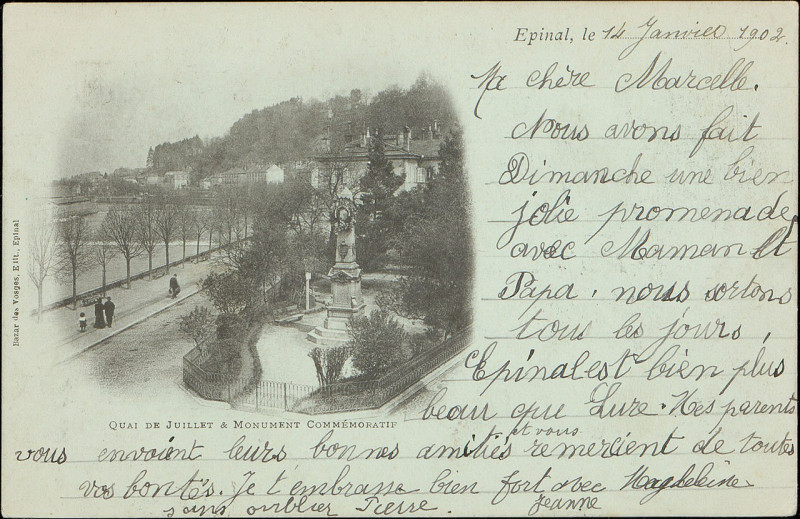 Epinal, le 14 Janvier 1902.
Ma chère Marcelle.
Nous avons fait
Dimanche une bien
jolie promenade
avec Maman et
Papa, nous sortons
tous les jours,
Epinal est bien plus
beau que Lure. Mes parents
vous envoient leurs bonnes amitiés et vous remercient de toutes
vos bontés. Je t'embrasse bien fort avec Magdeleine
sans oublier Pierre. Jeanne
QUAI DE JUILLET & MONUMENT COMMÉMORATIF
Bazar des Vosges, Edit., Epinal